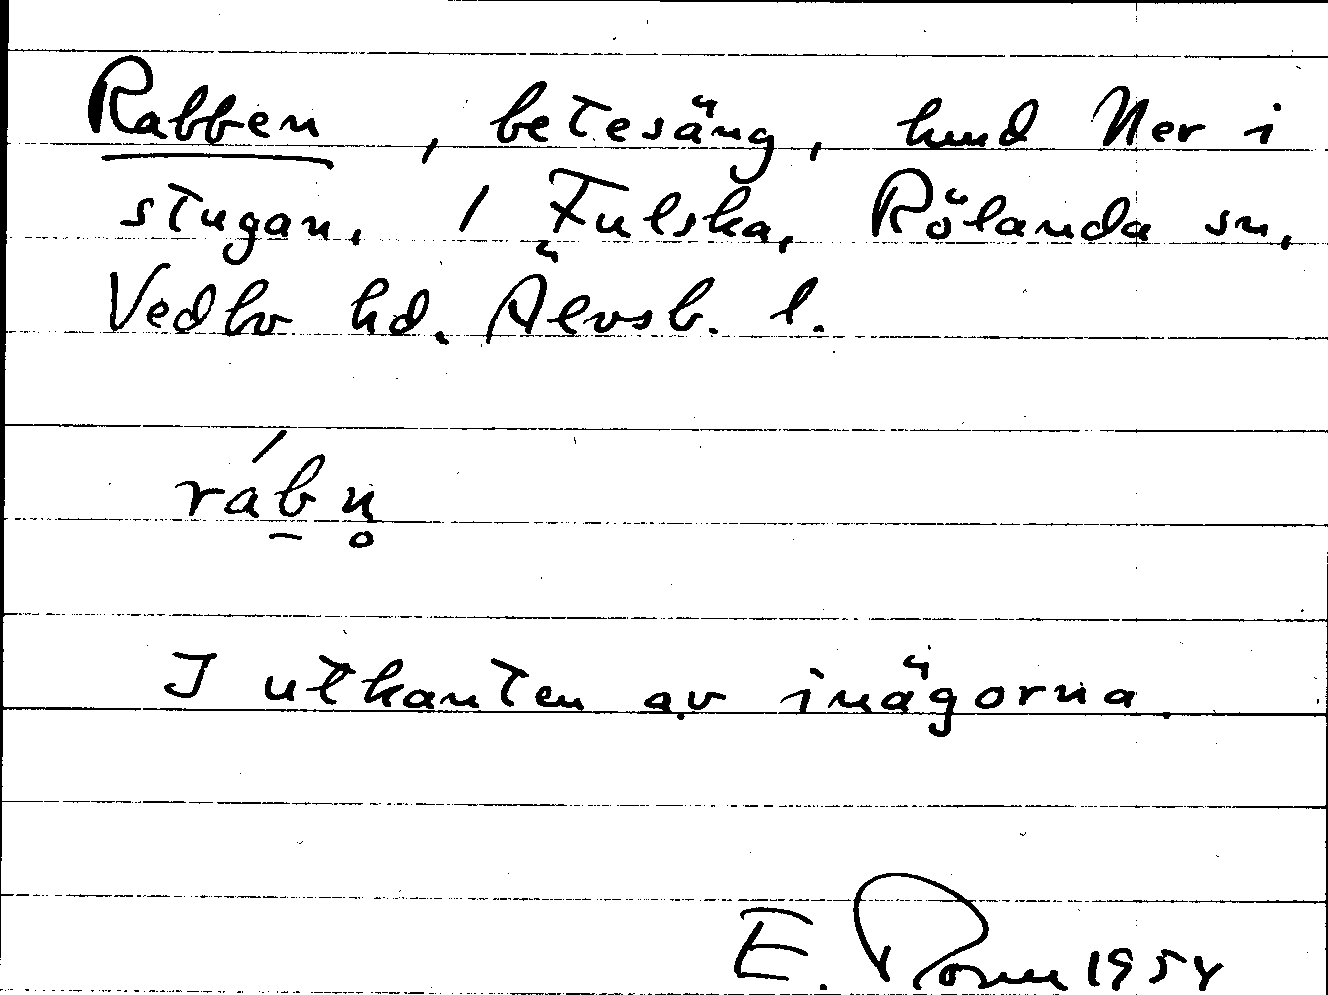 Rabben, betesäng, hmd Ner i
stugan, 1 Fulska, Rölanda sn,
Vedbo hd. Älvsb. l.
rábn̥
I utkanten av inägorna.
E. 1954